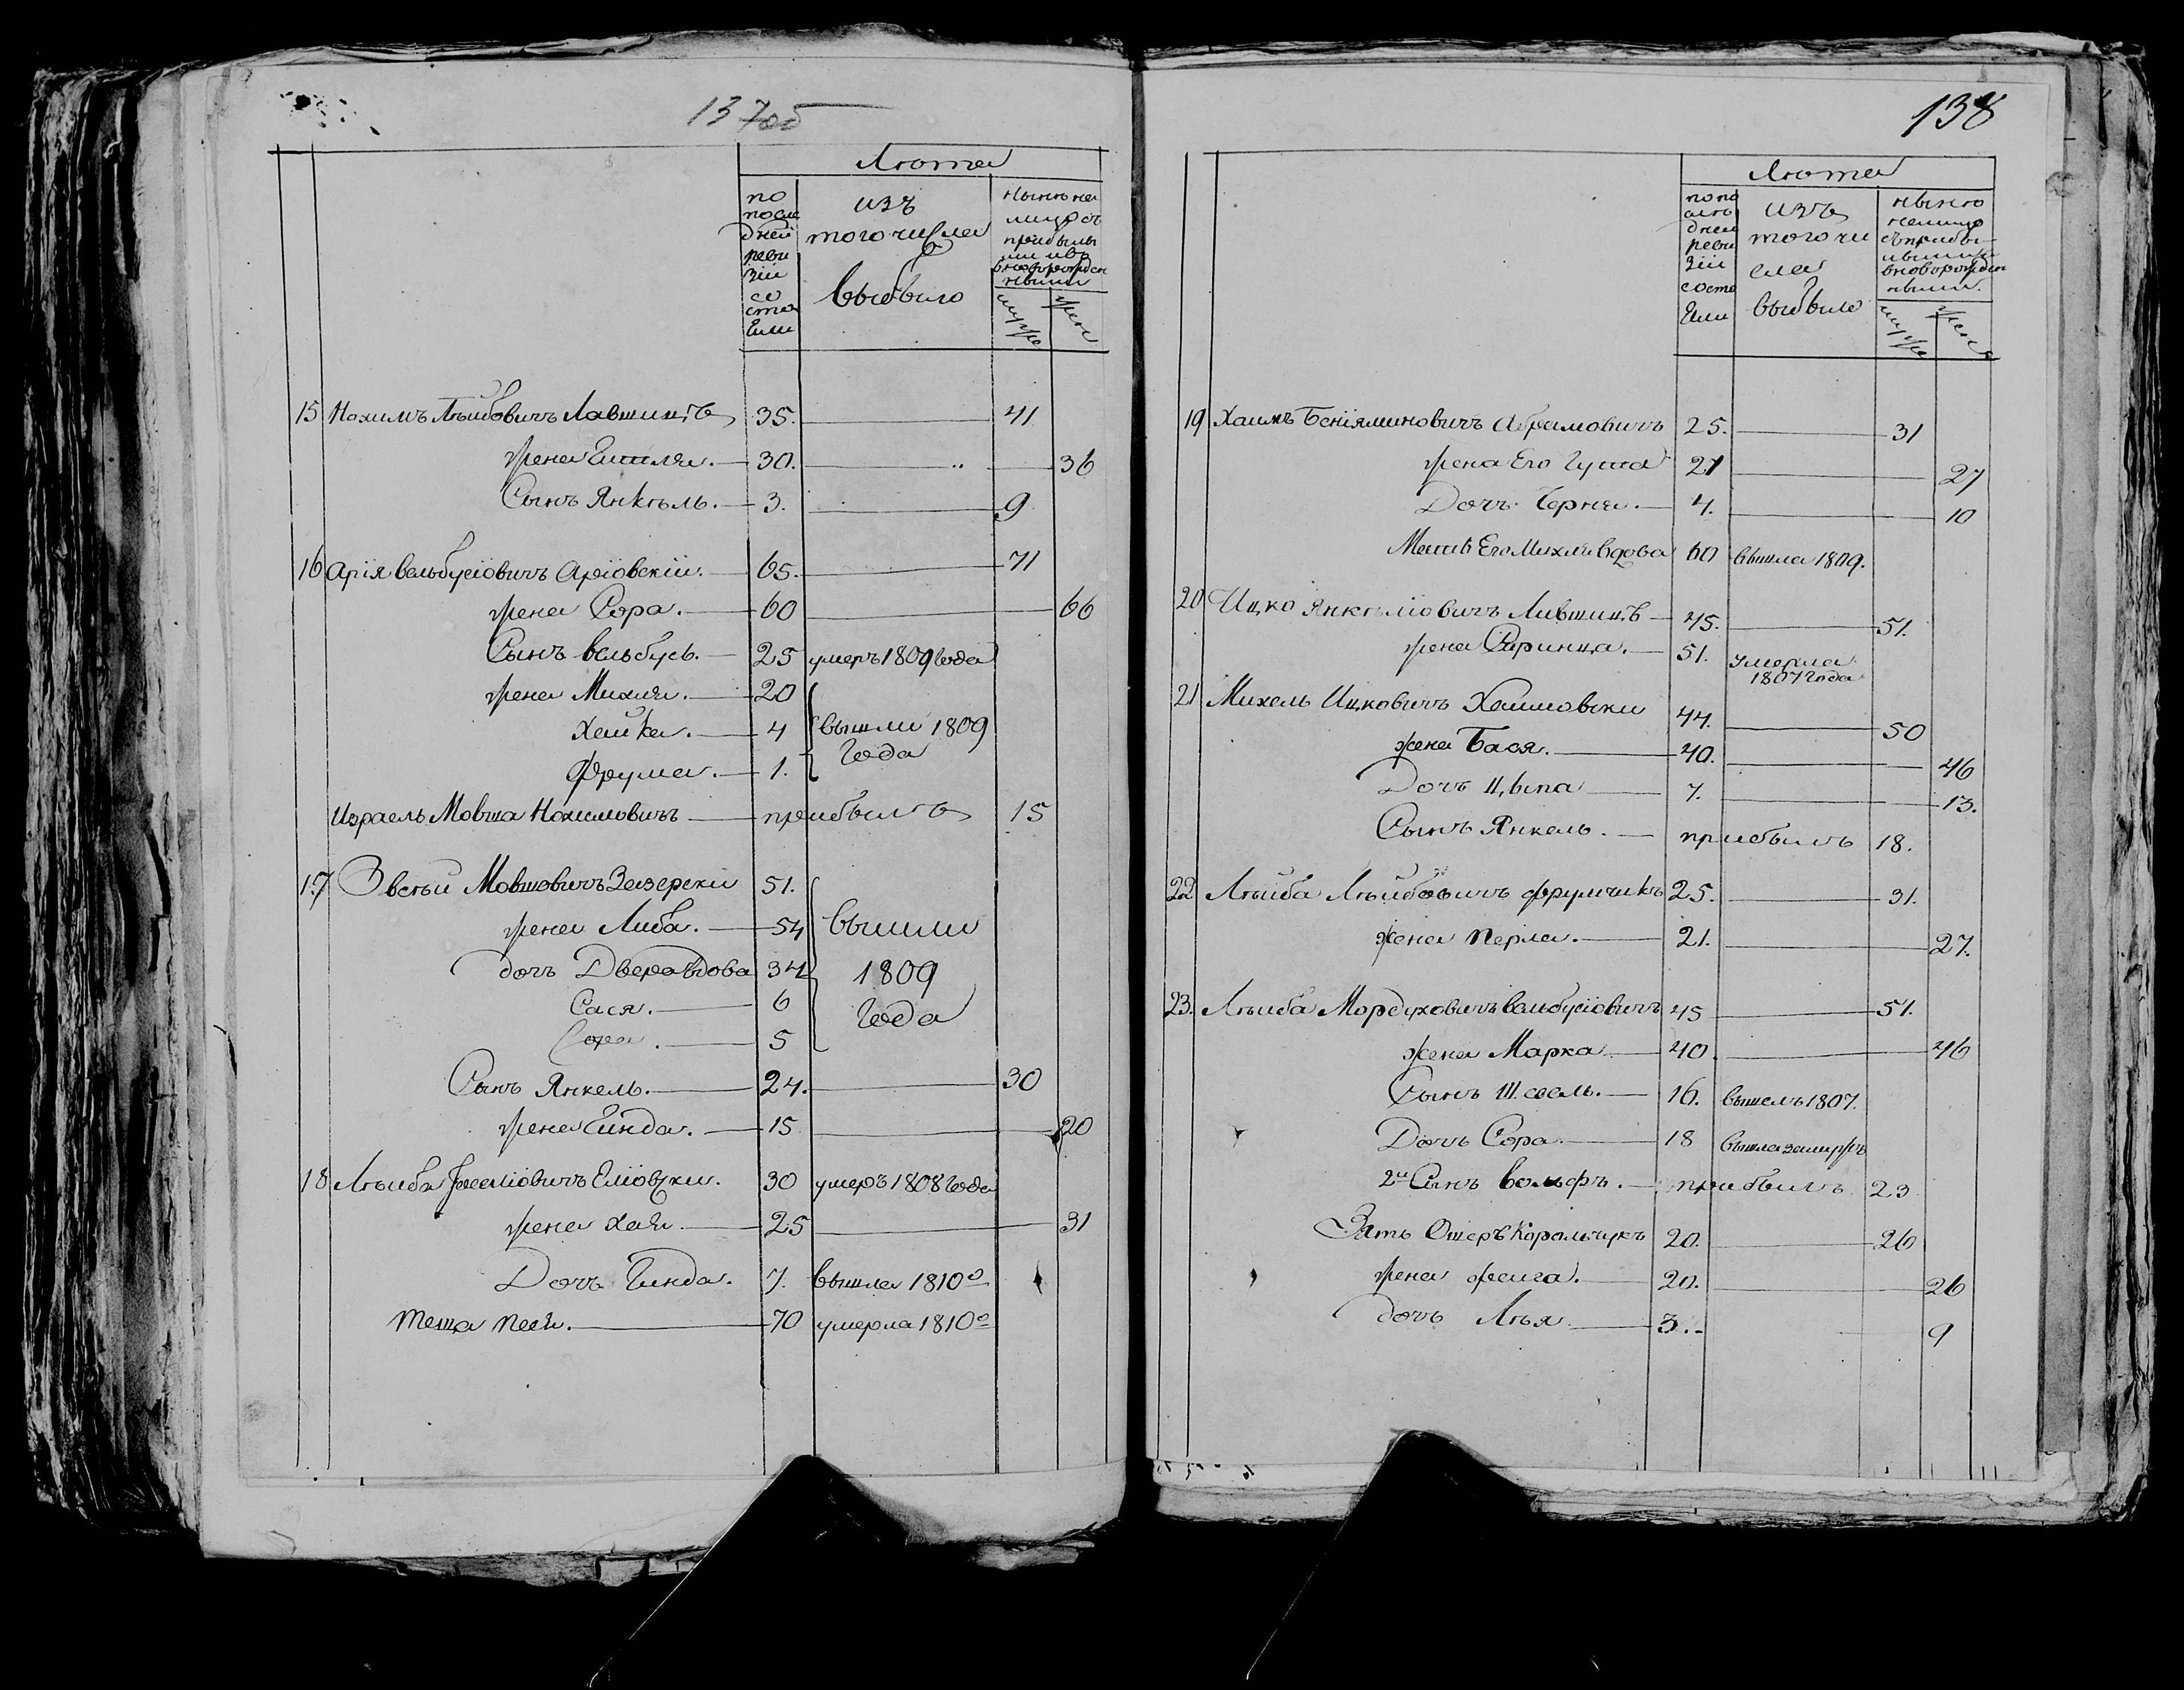 137об
Люта
по последней ревизіи состояли
изъ того числа выбыло
нынѣ на лицо съ прибылыми и новорожденными
муж
жен
15 Нохимъ Лѣйбовичъ Лавшицъ 35. 41
жена Ешля. 30. 36
Сынъ Янкѣль. 3. 9
16 Арія вольбусіовичъ Аріовскій. 65. 71
жена Сора. 60 66
Сынъ вольбусь. 25 умеръ 1809 года
жена Михля. 20
Хайка. 4 вышли 1809
Фрума. 1. года
Израель Мовша Нохимовичъ прибылъ 15
17 Звѣй Мовшовичъ Зазерски 51.
жена Либа. 54 вышли
дочъ Двера вдова 34 1809
Сася. 6 года
Сора. 5
Сынъ Янкель. 24. 30
жена Гинда. 15 20
18 Лѣиба Еліовски. 30 умеръ 1808 года
жена Хая. 25 31
Дочъ Гинда. 7. вышла 1810о
теща песя. 70 умерла 1810о
138
Люта
по последней ревизіи состояли
изъ того числа выбыло
нынѣ на лицо съ прибылыми новорожденными.
муж
женск
19 Хаимъ Беніяминовичъ Абрамовичъ 25. 31
жена Его Гута 21 27
Дочъ Черня. 4. 10
Мать Его Михля вдова 60 вышла 1809.
20 Ицко Янкѣліовичъ Лившицъ 45. 51.
жена Саринца. 51. умерла
1807 года
21 Михель Ицковичъ Хаимовски 44. 50
жена Бася. 40. 46
Дочъ Цыпа 7. 13.
Сынъ Янкель. прибылъ 18.
22 Лѣйба Лѣйбовичъ фрумчикъ 25. 31.
жена перла. 21. 27.
23. Лѣиба Мордуховичъ волбусіовичъ 45 51.
жена Марка 40. 46
Сынъ 16. вышелъ 1807.
Дочъ Сора. 18 вышла замужъ
2й Сынъ вольфъ. прибылъ 23
Зять Ошеръ Корольчукъ 20. 26
жена фейга. 20. 26
дочъ Лѣя 3. 9